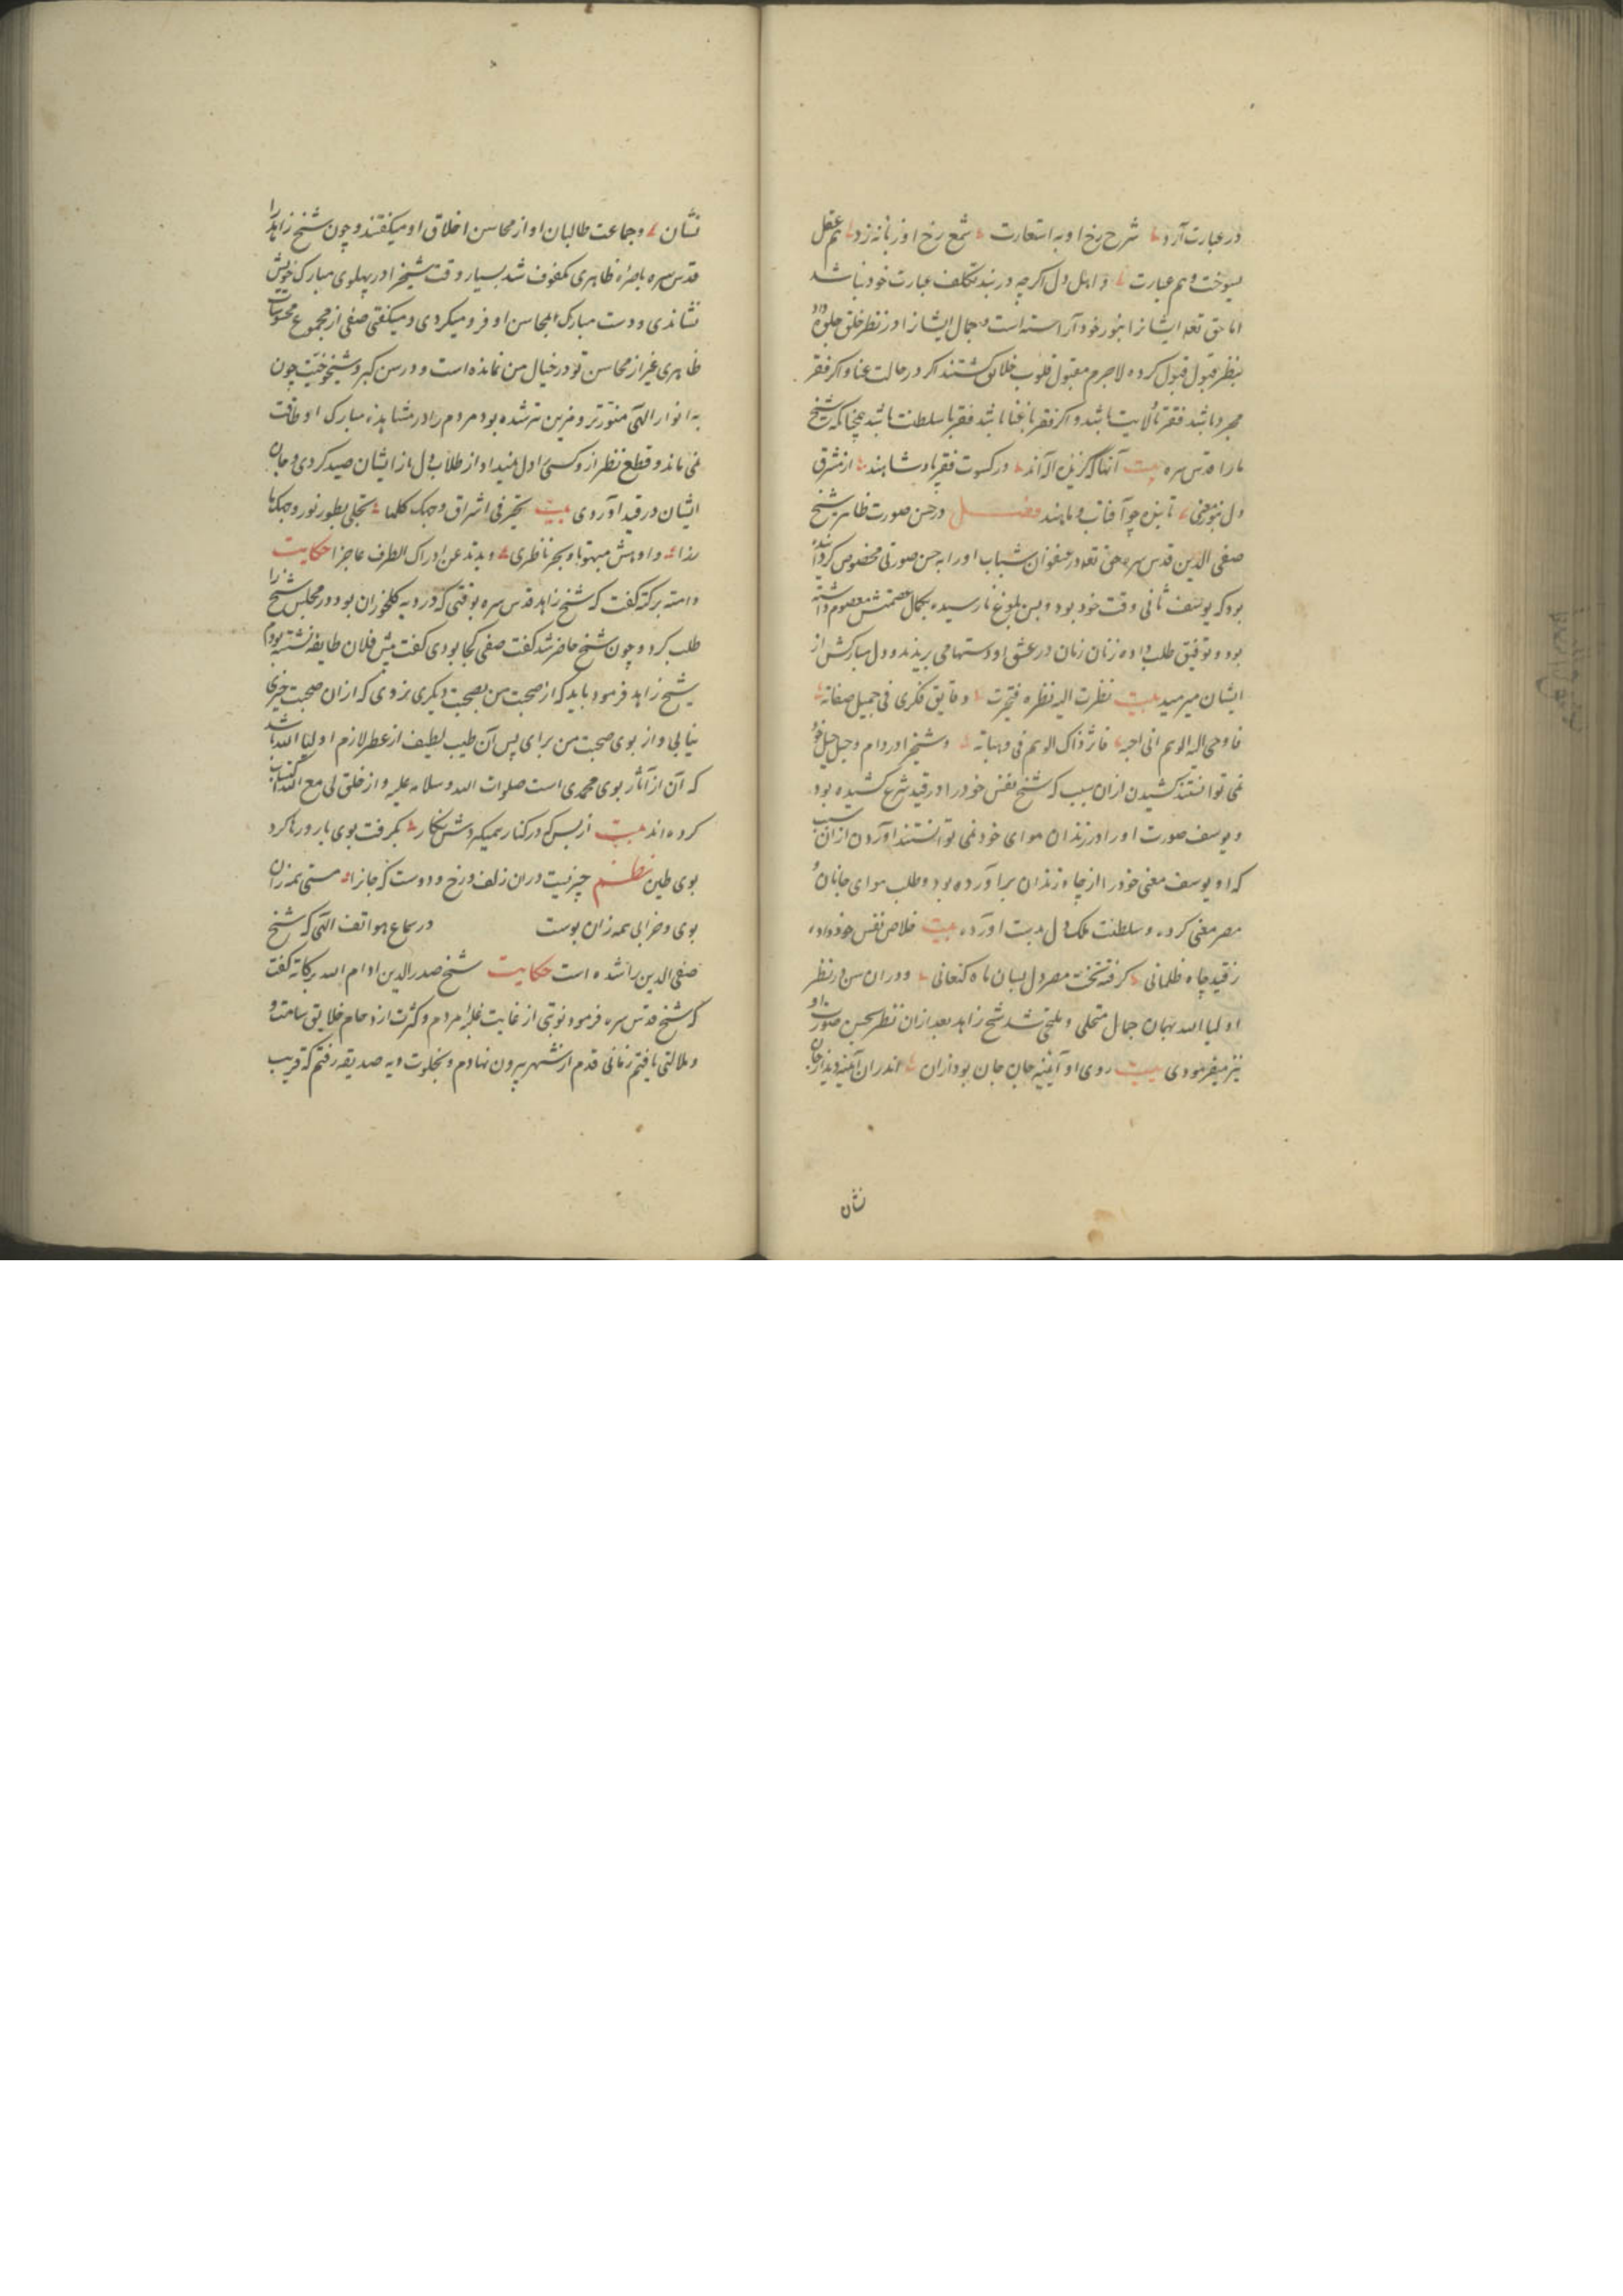 در عبارت آرد شرح رخ او به استعارت شمع رخ او زبانه زد هم عقل
بسوخت و هم عبارت و اهل دل اکرچه در بند تکلف عبارت خود نباشد
اما حق تعه ایشانرا بنور خود آراسته است و جمال ایشانرا در نظر خلق جلوه داد
بنظر قبول قبول کرده لاجرم مقبول قلوب خلایق کشتند اکر در حالت غنا و اکر فقر
مجرد باشد فقر با ولایت باشد و اکر فقر با غنا باشد فقر با سلطنت باشد چنانکه شیخ
ما را قدس سره بیت آنها که کزیده اله‌اند در کسوت فقر پادشاهند از مشرق
دل بنور معنی تابنده چو آفتاب و ماهند فصل در حسن صورت ظاهر شیخ
صفی الدین قدس سره حق تعه در عنفوان شباب او را به حسن صورتی مخصوص کردانیده
بود که یوسف ثانی وقت خود بود و بسن بلوغ نارسیده بکمال عصمتش معصوم داشته
بود و توفیق طلب داده زنان زنان در عشق او دستها می بریدند و دل مبارکش از
ایشان میرمید بیت نظرت الیه نظره فتحیرت دقایق فکری فی جمیل صفاته
فاوحی الیه الوهم انی احبه فاثر ذاک الوهم فی وجناته و شیخ را در دام و حیل خود
نمی توانستند کشیدن ازان سبب که شیخ نفس خود را در قید شرع کشیده بود
و یوسف صورت او را در زندان هوای خود نمی توانستند آوردن ازان سبب
که او یوسف معنی خود را از چاه زندان برآورده بود و طلب هوای جانان
مصر معنی کرده و سلطنت ملک دل بدست آورده بیت خلاص نفس خود داده
ز قید چاه ظلمانی کرفته تخت مصر دل بسان ماه کنعانی و دران سن در نظر
اولیا الله بهمان جمال متحلی و ملتحی شد شیخ زاهد بعد ازان نظر بحسن صورت او
نیز میفرمودی بیت روی او آیینه جان جان بود ازان اندران آینه دیدار جان
نشان
نشان و جماعت طالبان او از محاسن اخلاق او میکفتند و چون شیخ زاهد را
قدس سره باصره ظاهری مکفوف شد بسیار وقت شیخ را در پهلوی مبارک خویش
نشاندی و دست مبارک بمحاسن او فرو میکردی و میکفتی صفی از مجموع محسوسات
ظاهری غیر از محاسن تو در خیال من نمانده است و در سن کبر و شیخوخیت چون
به انوار الهی منورتر و مزین تر شده بود مردم را در مشاهده مبارک او طاقت
نمی ماند و قطع نظر از و کسی را دل نمیداد از طلاب دل باز ایشان صید کردی و جان
ایشان در قید آوردی بیت تحیر فی اشراق وجهک کلما تجلی بطور نور وجهک ما
رذا و ادهش مبهوتا وبحر ناظری ویرتد عن ادراک الطرف عاجزا حکایت
دامت برکته کفت که شیخ زاهد قدس سره بوقتی که در دیه کلخوران بود در مجلس شیخ را
طلب کرد و چون شیخ حاضر شد کفت صفی کجا بودی کفت پیش فلان طایفه نشسته بودم
شیخ زاهد فرمود باید که از صحبت من بصحبت دیکری نروی که ازان صحبت چیزی
نیابی و از بوی صحبت من برای پس آن طیب لطیف از عطر لازم اولیا الله باشد
که آن از آثار بوی محمدی است صلوات الله و سلامه علیه و از خلق لی مع الله اکتساب
کرده‌اند بیت از بس که در کنار همیکیردش نکار بکرفت بوی یار و رها کرد
بوی طین نظم چیزیست دران زلف و رخ و دوست که جانرا مستی همه زان
بوی و خرابی همه زان بوست در سماع هواتف الهی که شیخ
صفی الدین را شده است حکایت شیخ صدرالدین ادام الله برکاته کفت
که شیخ قدس سره فرمود نوبتی از غایت غلبه مردم و کثرت ازدحام خلایق سامت و
و ملالتی یافتم زمانی قدم از شهر بیرون نهادم و بخلوت دیه صدیقه رفتم که قریب